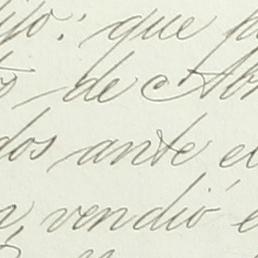 dijo: que
de Abr
dos ante el
vendió e